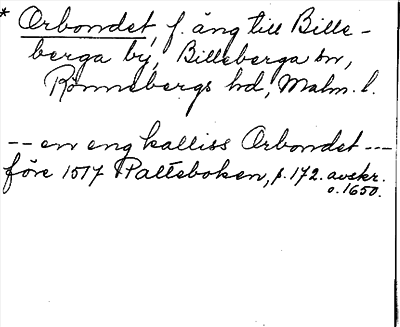 * Orbondet, f. äng till Bille-
berga by, Billeberga sn,
Rönnebergs hd, Malm. l.
-- en eng kalliss Orbondet ---
före 1517 Palteboken, s. 172. avskr.
o. 1650.